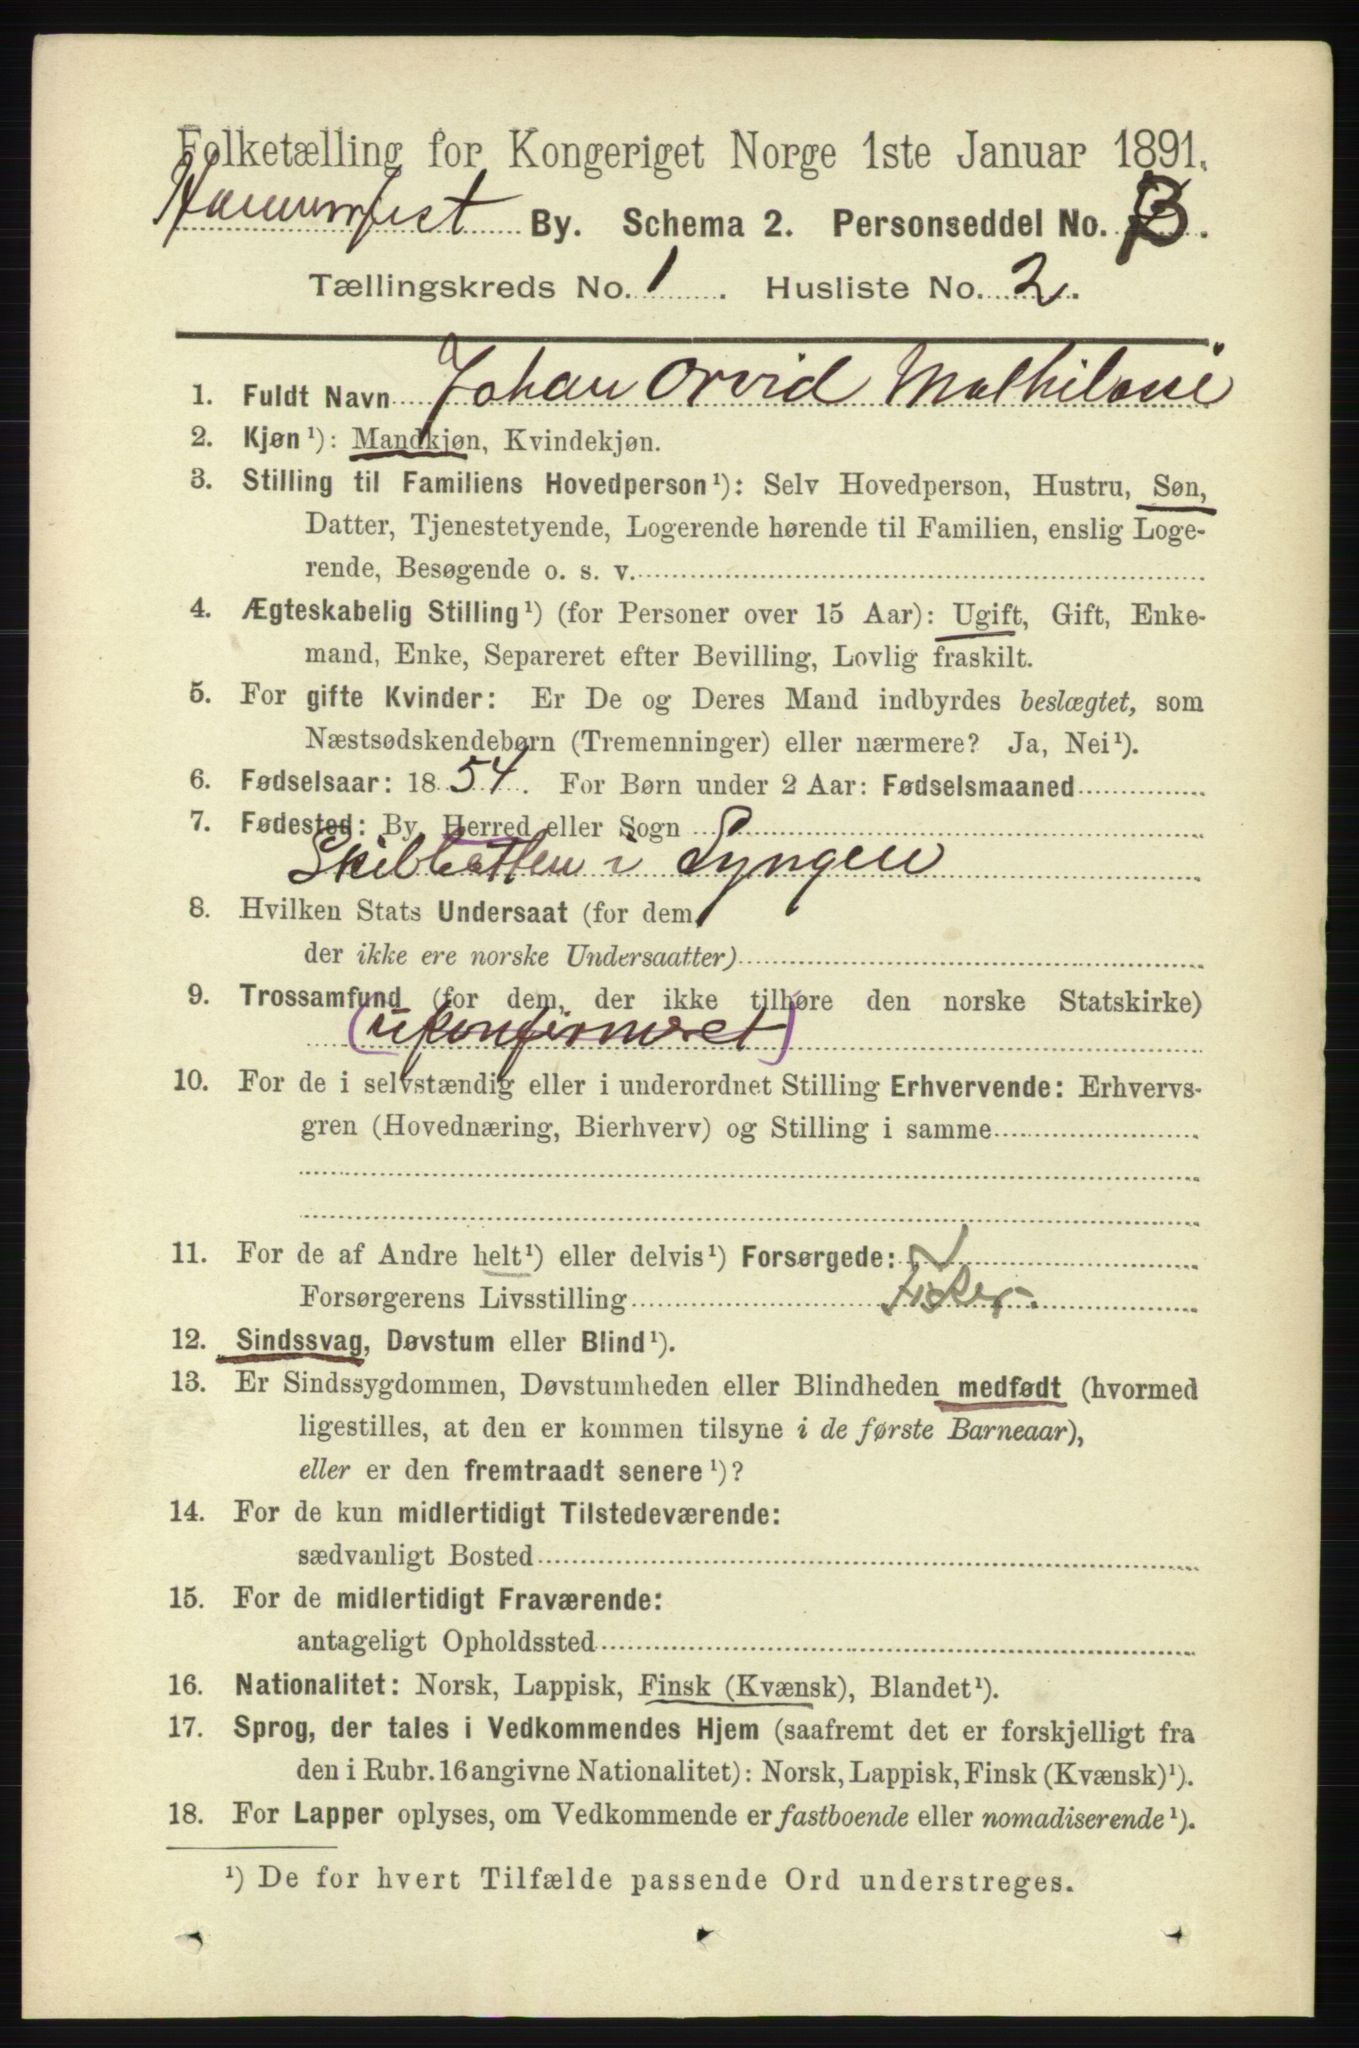 Folketælling for Kongeriget Norge 1ste Januar 1891.
Hammerfest By. Schema 2. Personseddel No. 3.
Tællingskreds No. 1. Husliste No. 2.
1. Fuldt Navn Johan Orvid
2. Kjøn¹): Mandkjøn, Kvindekjøn.
3. Stilling til Familiens Hovedperson¹): Selv Hovedperson, Hustru, Søn,
Datter, Tjenestetyende, Logerende hørende til Familien, enslig Loge-
rende, Besøgende o. s. v.
4. Ægteskabelig Stilling¹) (for Personer over 15 Aar): Ugift, Gift, Enke-
mand, Enke, Separeret efter Bevilling, Lovlig fraskilt.
5. For gifte Kvinder: Er De og Deres Mand indbyrdes beslægtet, som
Næstsødskendebørn (Tremenninger) eller nærmere? Ja, Nei¹).
6. Fødselsaar: 1854. For Børn under 2 Aar: Fødselsmaaned
7. Fødested: By, Herred eller Sogn
Skibbotten i Lyngen
8. Hvilken Stats Undersaat (for dem,
der ikke ere norske Undersaatter)
9. Trossamfund (for dem, der ikke tilhøre den norske Statskirke)
(ukonfirmeret)
10. For de i selvstændig eller i underordnet Stilling Erhvervende: Erhvervs-
gren (Hovednæring, Bierhverv) og Stilling i samme
11. For de af Andre helt¹) eller delvis¹) Forsørgede:
Forsørgerens Livsstilling Fisker
12. Sindssvag, Døvstum eller Blind¹).
13. Er Sindssygdommen, Døvstumheden eller Blindheden medfødt (hvormed
ligestilles, at den er kommen tilsyne i de første Barneaar),
eller er den fremtraadt senere¹)?
14. For de kun midlertidigt Tilstedeværende:
sædvanligt Bosted
15. For de midlertidigt Fraværende:
antageligt Opholdssted
16. Nationalitet: Norsk, Lappisk, Finsk (Kvænsk), Blandet¹).
17. Sprog, der tales i Vedkommendes Hjem (saafremt det er forskjelligt fra
den i Rubr. 16 angivne Nationalitet): Norsk, Lappisk, Finsk (Kvænsk)¹).
18. For Lapper oplyses, om Vedkommende er fastboende eller nomadiserende¹).
¹) De for hvert Tilfælde passende Ord understreges.